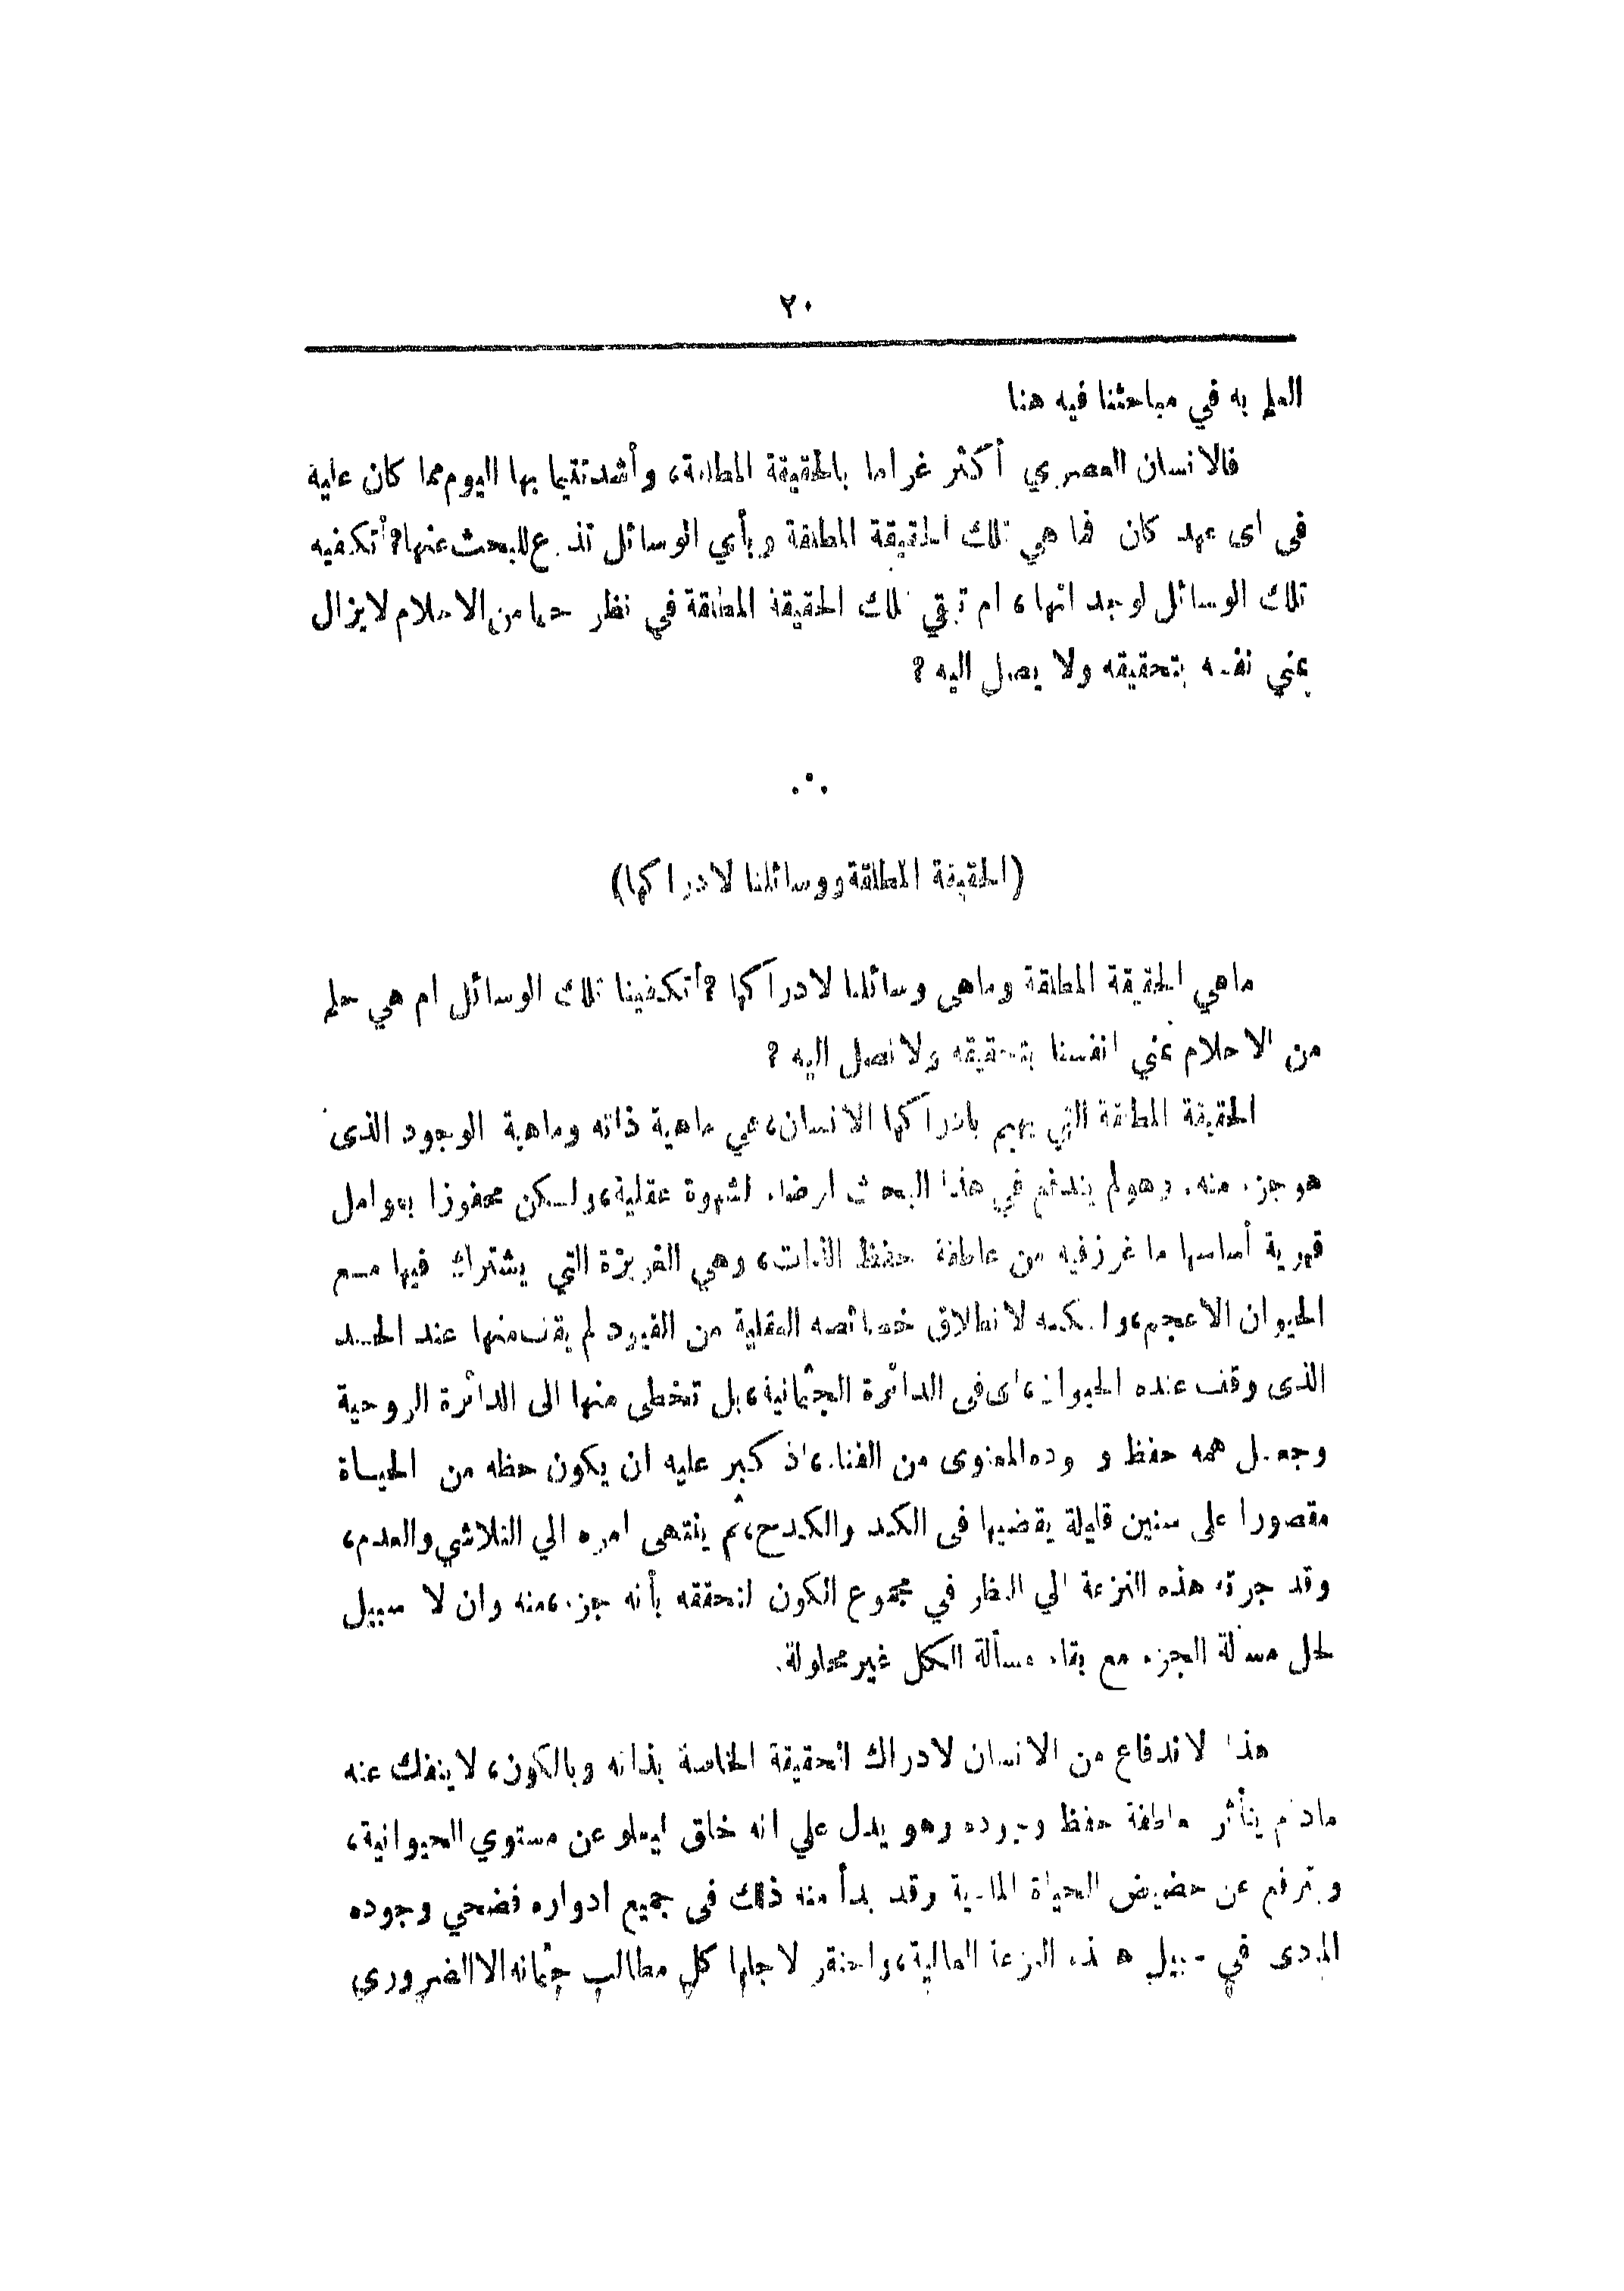 ٢٠
العلم به في مباحثنا فيه هنا
فالانسان العصري أكثر غراما بالحقيقة المطلقة، وأشد تتيما بها اليوم مما كان عليه
فى اى عهد كان فما هي تلك الحقيقة المطلقة وبأي الوسائل تذرع للبحث عنها؟ أتكفيه
تلك الوسائل لوجدانها، ام تبقي تلك الحقيقة المطلقة في نظر حلما من الاحلام لايزال
يمني نفسه بتحقيقه ولا يصل اليه ؟
(الحقيقة المطلقة ووسائلنا لادراكها)
ماهي الحقيقة المطلقة وماهى وسائلنا لادراكها ؟ أتكفينا تلك الوسائل ام هي حلم
من الاحلام نمني انفسنا بتحقيقه ولا نصل اليه ؟
الحقيقة المطلقة التي يهيم بادراكها الانسان، هي ماهية ذاته وماهية الوجود الذى
هو جزء منه. وهو لم يندفع في هذا البحث ارضاء لشهوة عقلية، ولكن محفوزا بعوامل
قهرية أساسها ما غرز فيه من عاطفة حفظ الذات، وهي الغريزة التي يشترك فيها مع
الحيوان الاعجم، ولكنه لانطلاق خصائصه العقلية من القيود لم يقف منها عند الحد
الذى وقف عنده الحيوان، اى فى الدائرة الجثمانية، بل تخطى منها الى الدائرة الروحية
وجعل همه حفظ وجوده المعنوى من الفناء، اذ كبر عليه ان يكون حظه من الحياة
مقصورا على سنين قليلة يقضيها فى الكد والكدح، ثم ينتهى امره الي التلاشي والعدم،
وقد جرته هذه النزعة الي النظر في مجموع الكون لتحققه بأنه جزء منه وان لا سبيل
لحل مسألة الجزء مع بقاء مسألة الكل غير محلولة.
هذا الاندفاع من الانسان لادراك الحقيقة الخاصة بذاته وبالكون، لاينفك عنه
مادام يتأثر بعاطفة حفظ وجوده وهو يدل علي انه خلق ليعلو عن مستوي الحيوانية،
ويترفع عن حضيض الحياة المادية وقد بدأ منه ذلك فى جميع ادواره فضحي وجوده
المادى في سبيل هذه النزعة العالية، واحتقر لاجلها كل مطالب جثمانه الا الضروري